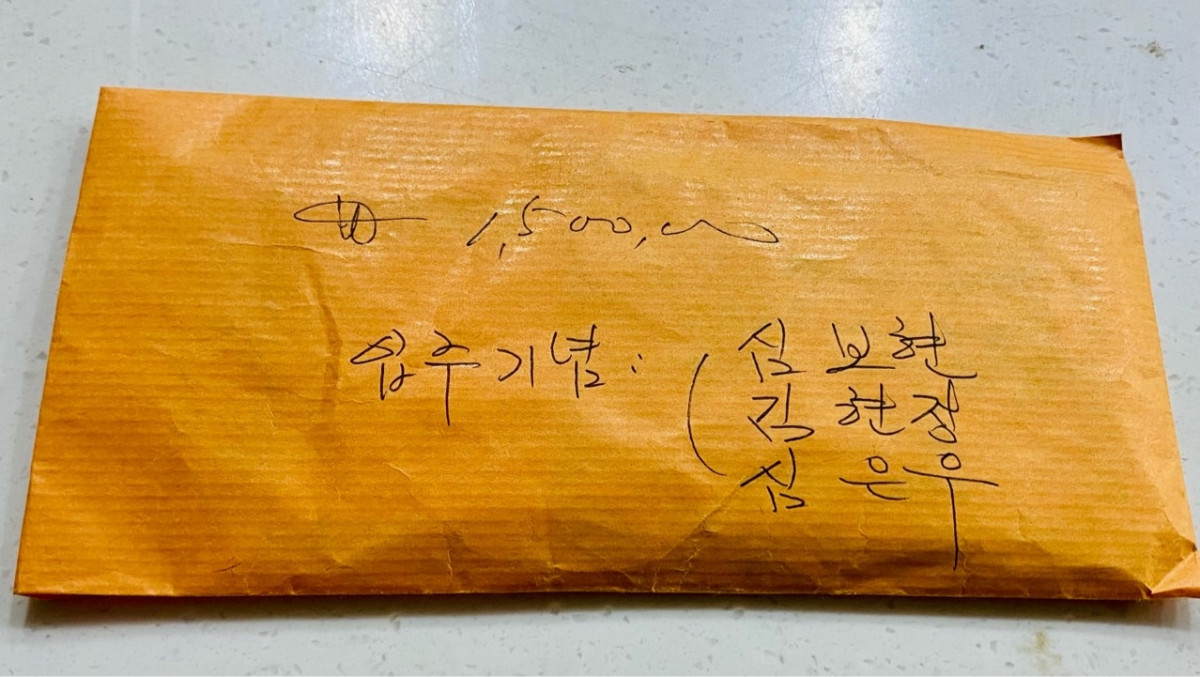 ₩ 1,500,000
입주기념 : ( 심보현
김현정
심은우